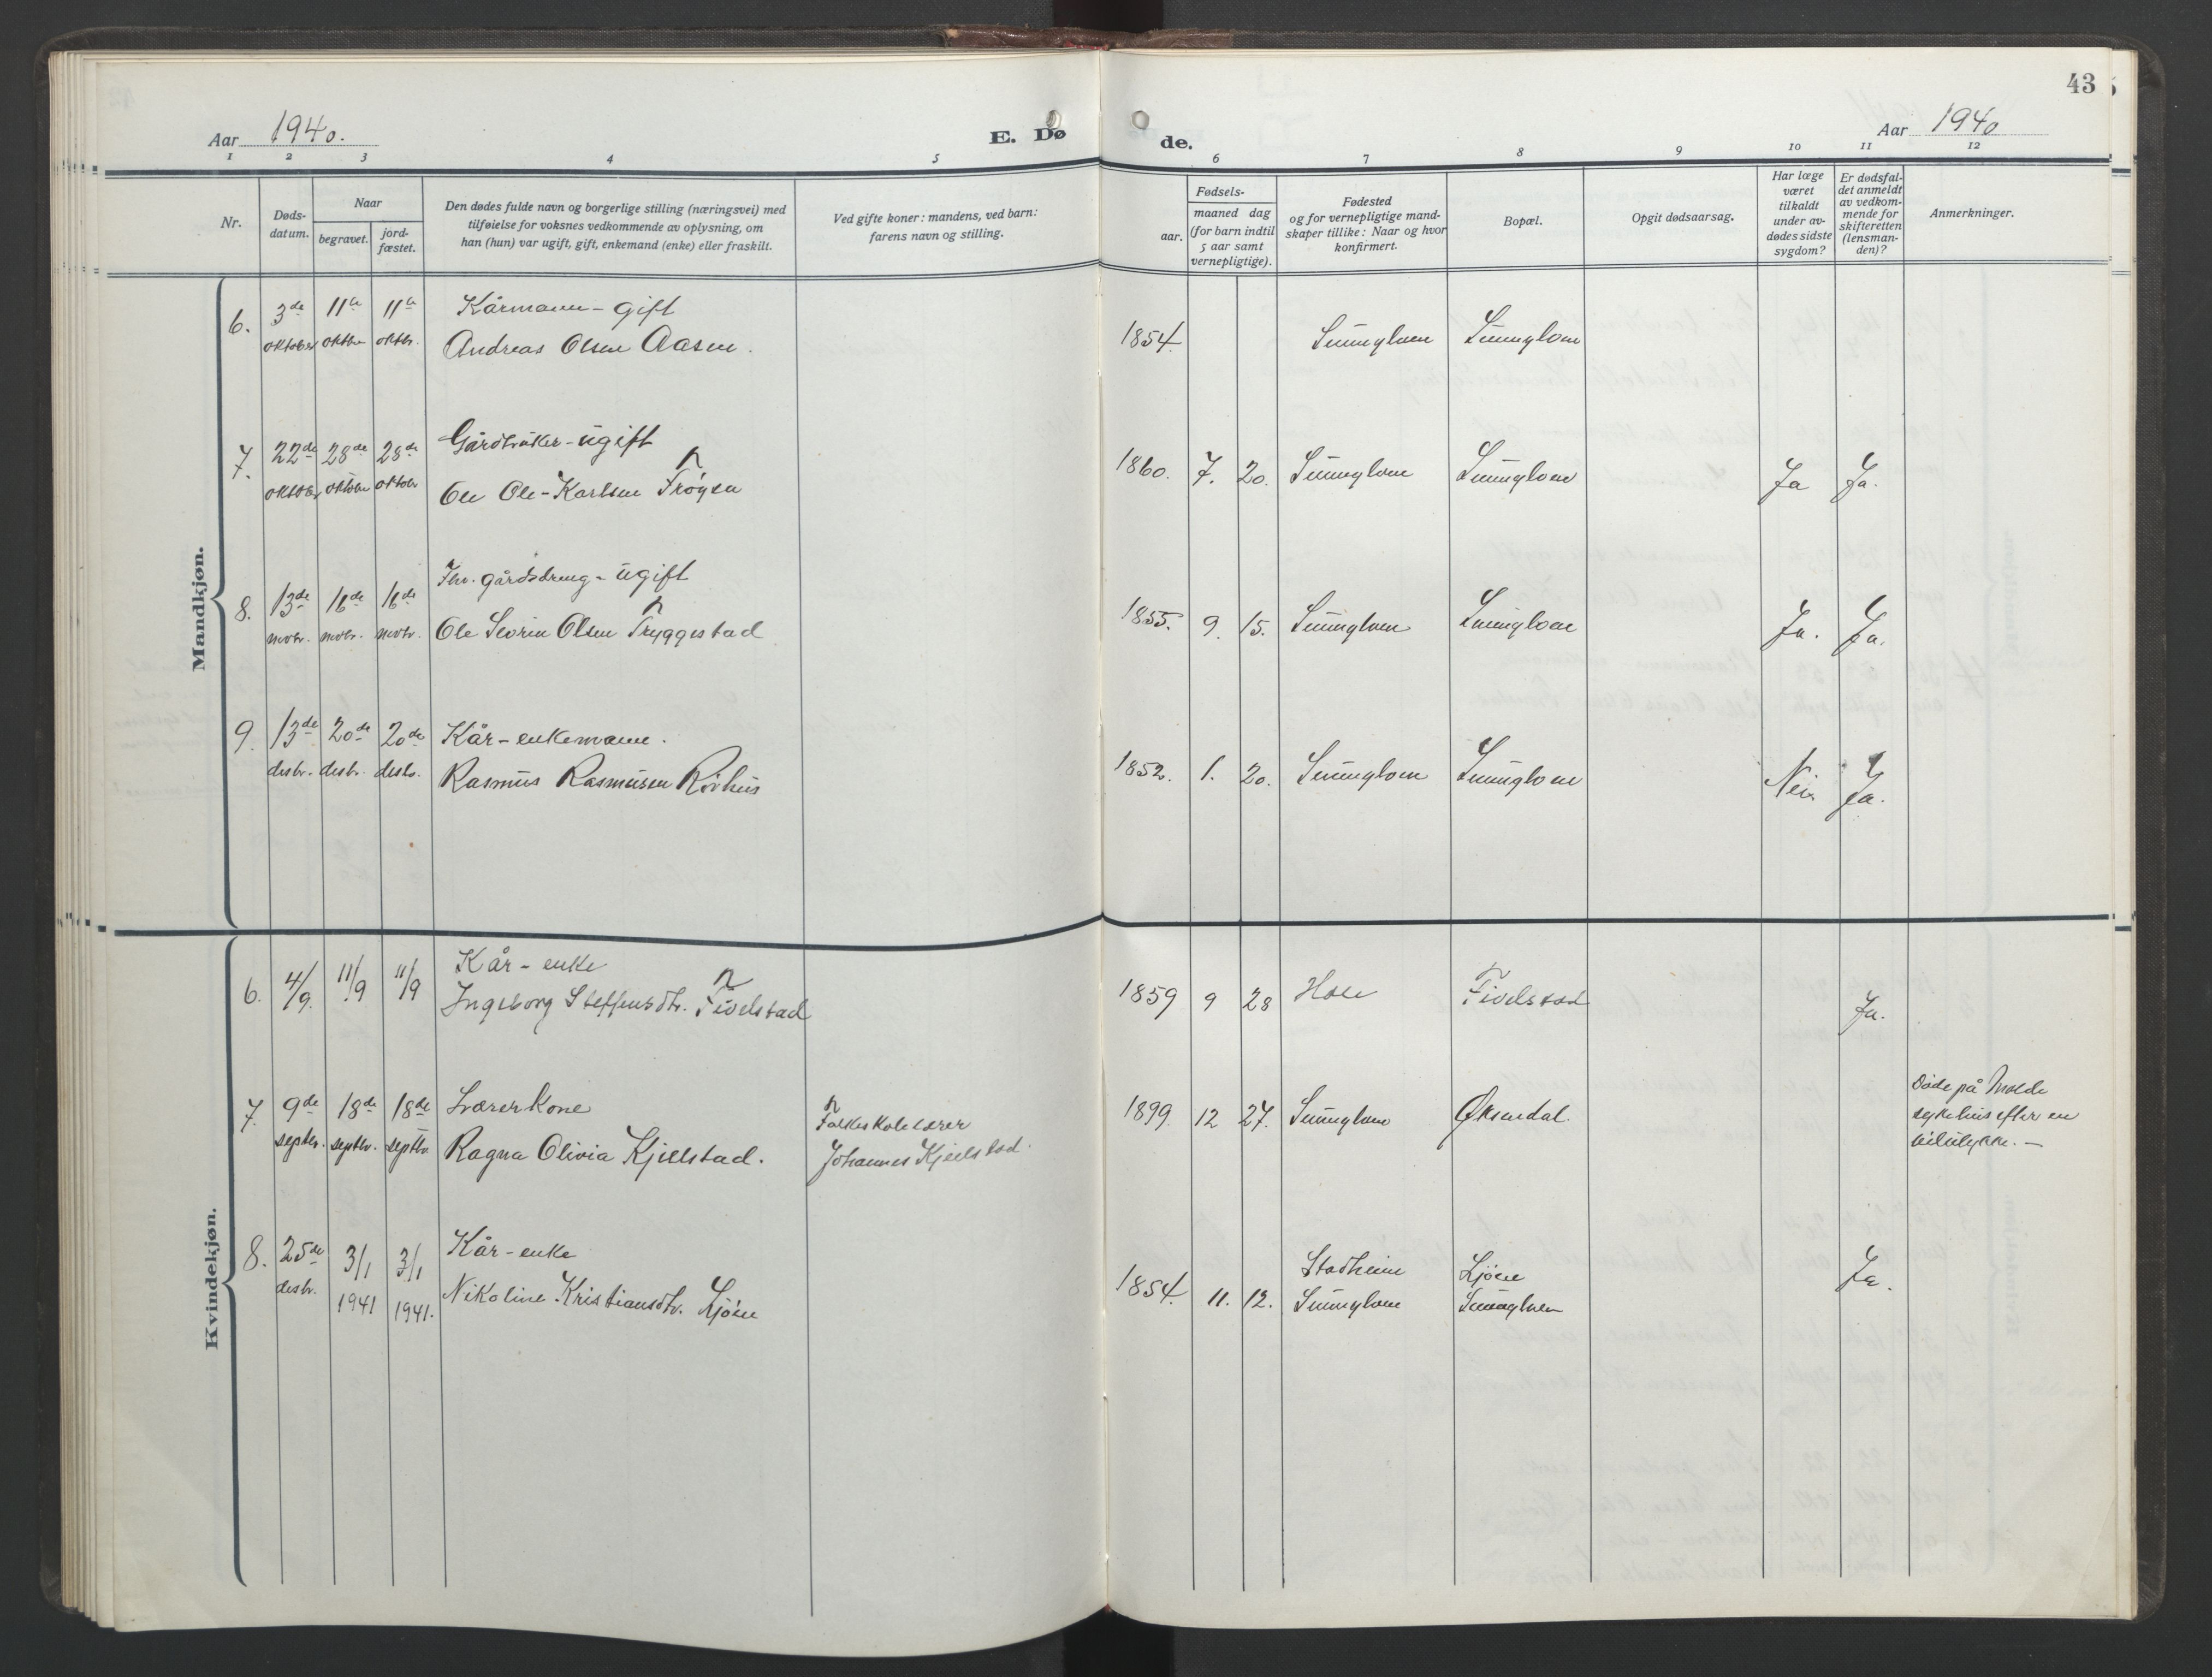 43
Aar 1940.
E. Dø
de.
Aar 1940
1 2 3 4 5 6 7 8 9 10 11 12
Nr.
Døds-
datum.
Naar
begravet.
jord-
fæstet.
Den dødes fulde navn og borgerlige stilling (næringsvei) med
tilføielse for voksnes vedkommende av oplysning, om
han (hun) var ugift, gift, enkemand (enke) eller fraskilt.
Ved gifte koner: mandens, ved barn:
farens navn og stilling.
Fødsels-
aar.
maaned dag
(for barn indtil
5 aar samt
vernepligtige).
Fødested
og for vernepligtige mand-
skaper tillike: Naar og hvor
konfirmert.
Bopæl.
Opgit dødsaarsag.
Har læge
været
tilkaldt
under av-
dødes sidste
sygdom?
Er dødsfal-
det anmeldt
av vedkom-
mende for
skifteretten
(lensman-
den)?
Anmerkninger.
Mandkjøn.
6. 3de 11te 11te Kårmann - gift
oktober oktbr oktbr. Andreas Olsen Aasen. 1854. Sunnylven Sunnylven
7. 22de 28de 28de Gårdbruker - ugift
oktober oktober oktobr Ole Ole-Karlsen Frøysa 1860. 7. 20. Sunnylven Sunnylven Ja Ja.
8. 13de 16de 16de Fhv. gårdsdreng - ugift
novbr. novbr. novbr. Ole Severin Olsen Tryggestad 1855. 9. 15. Sunnylven Sunnylven Ja. Ja.
9. 13de 20de 20de Kår-enkemann.
desbr. desbr. desbr. Rasmus Rasmusen Rørhus 1852. 1. 20. Sunnylven Sunnylven Nei. Ja.
Kvindekjøn.
6. 4/9. 11/9 11/9 Kår-enke
Ingeborg Steffensdtr. Fivelstad 1859 9 28 Hole Fivelstad Ja.
7. 9de 18de 18de Lærerkone Folkeskolelærer
septbr. septbr. septbr. Ragna Olivia Kjellstad. Johannes Kjellstad 1899. 12 27. Sunnylven Øksendal.
Døde på Molde
sykehus efter en
bilulykke. -
8. 25de 3/1 3/1 Kår-enke Stadheim Ljøen
desbr. 1941 1941. Nikoline Kristiansdtr. Ljøen 1854. 11. 12. Sunnylven Sunnylven Ja.